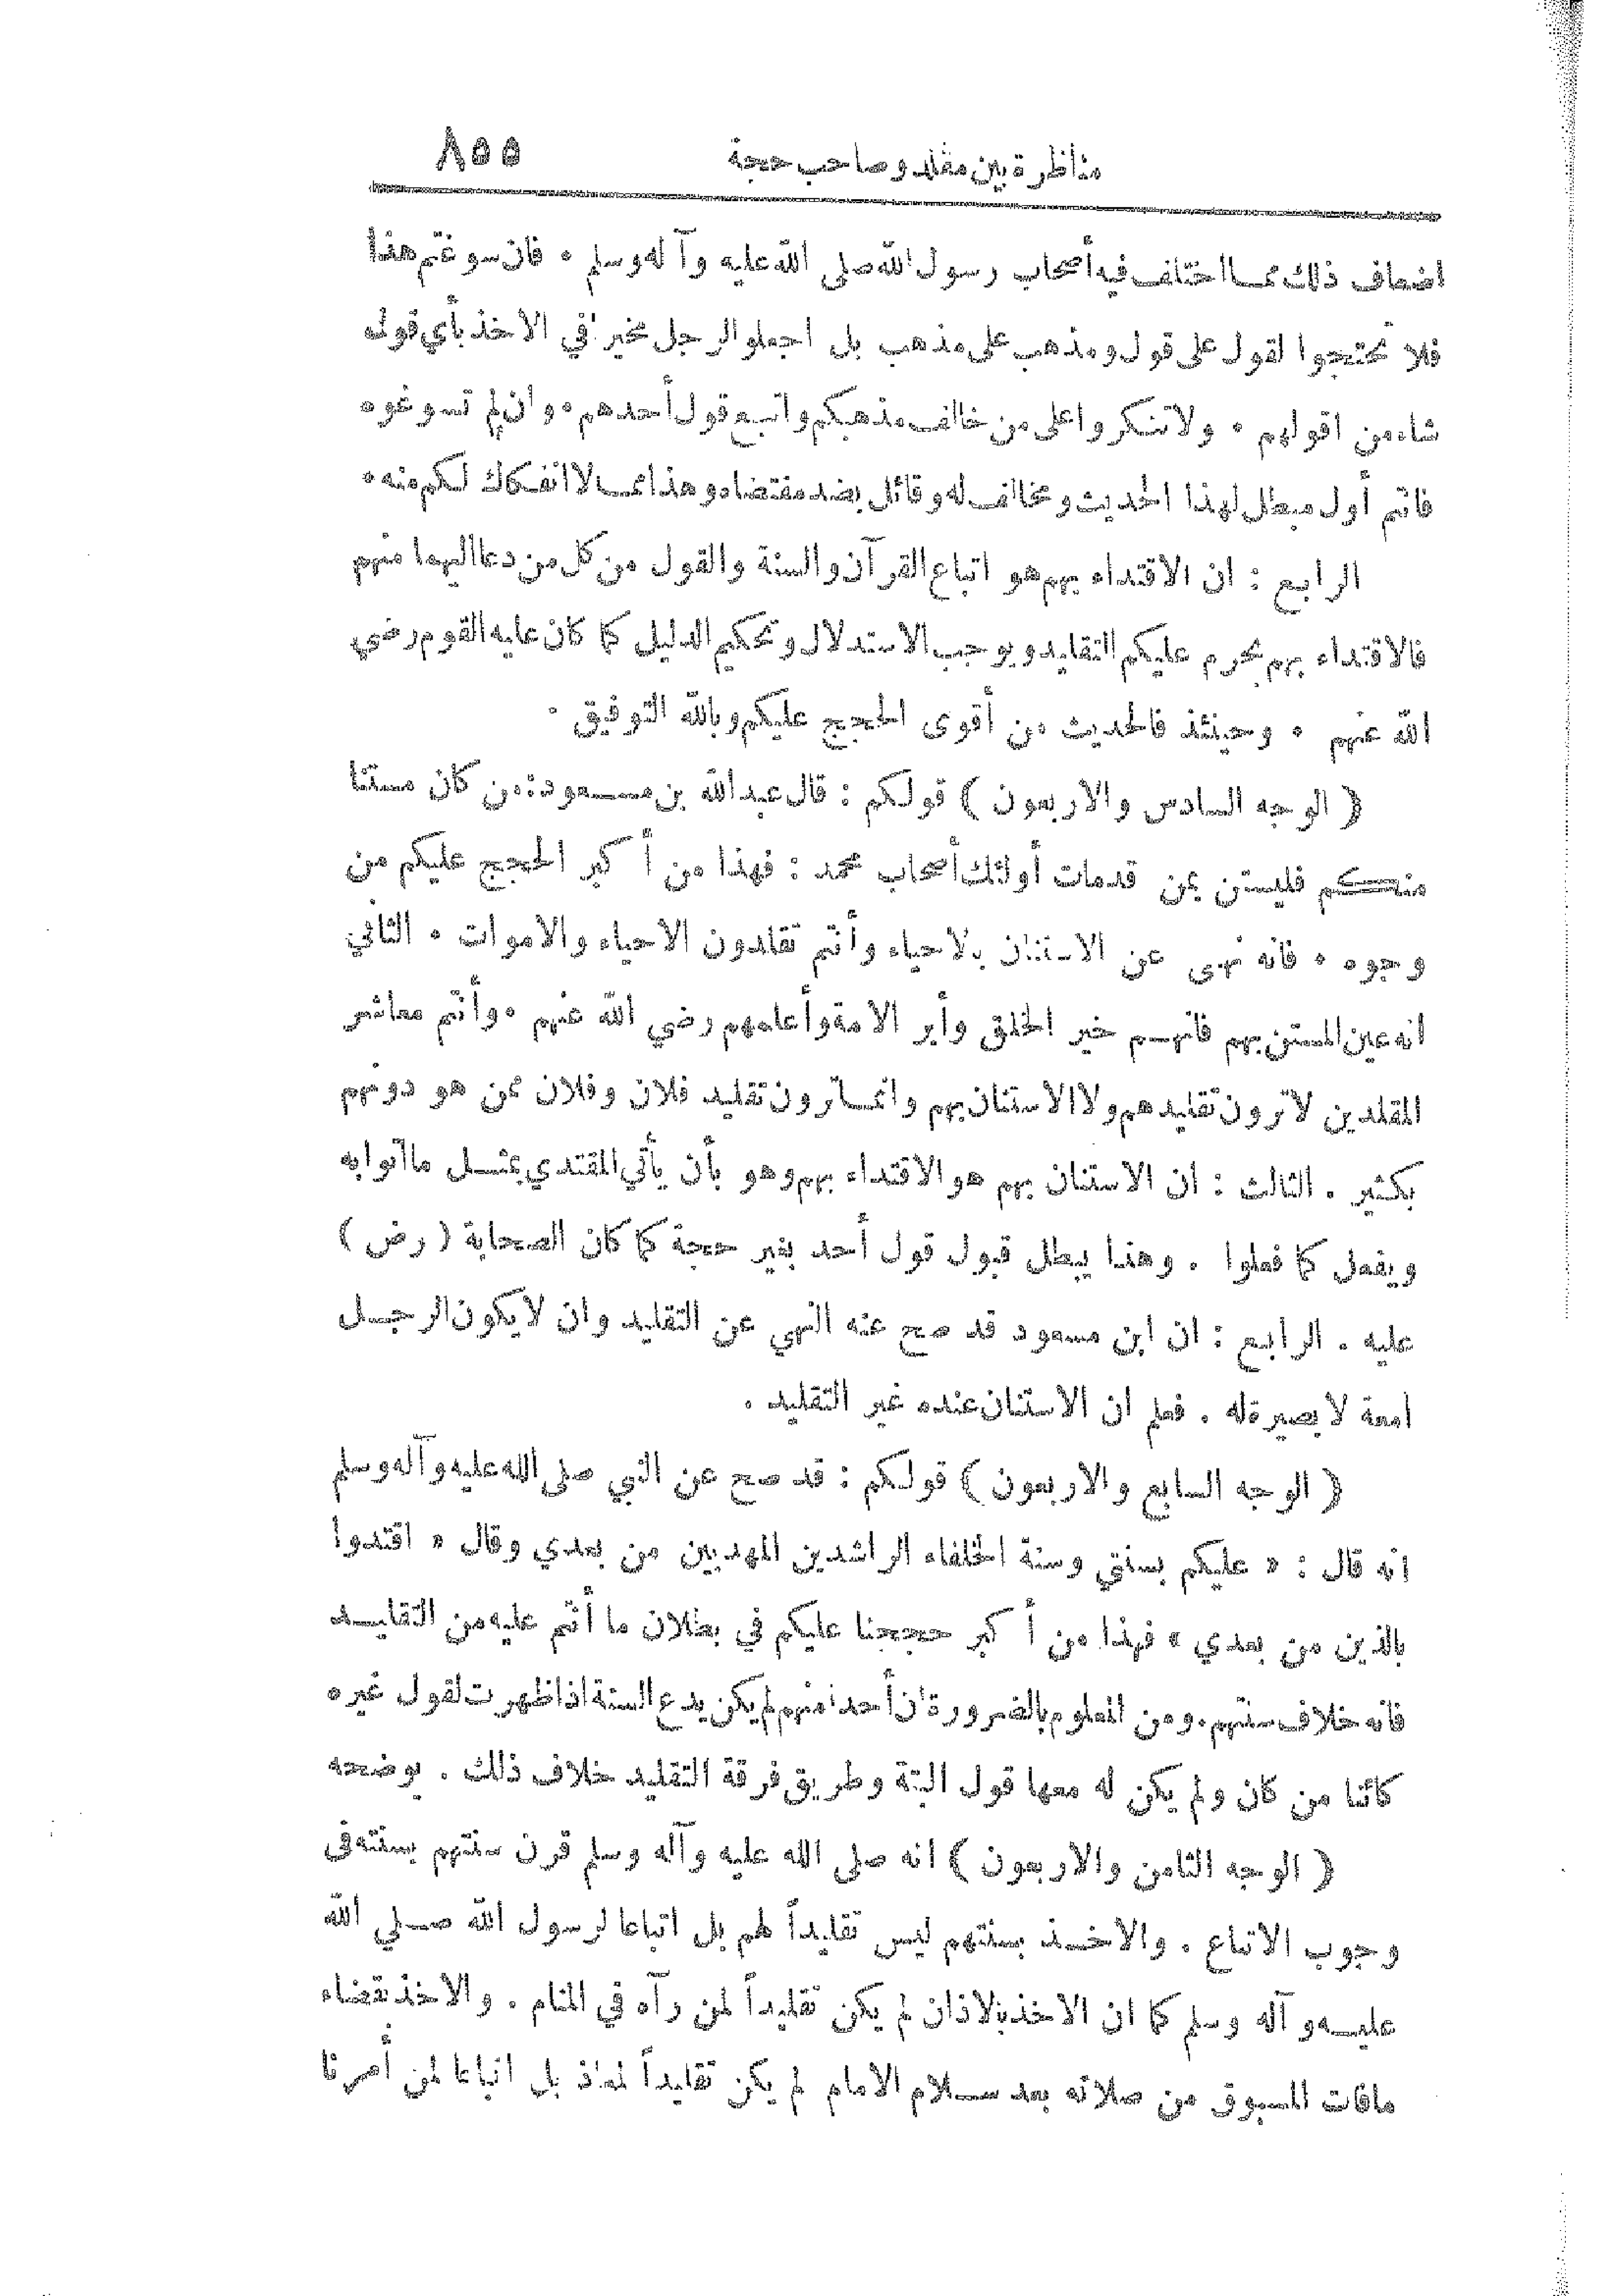 مناظرة بين مقلد وصاحب حجة ٨٥٥
اضعاف ذلك مما اختلف فيه أصحاب رسول الله صلى الله عليه وآله وسلم . فان سوغتم هذا
فلا تحتجوا لقول على قول ومذهب على مذهب بل اجعلوا الرجل مخيرا في الاخذ بأي قول
شاء من اقولهم . ولا تنكروا على من خالف مذهبكم واتبع قول أحدهم . وان لم تسوغوه
فانتم أول مبطل لهذا الحديث ومخالف له وقائل بضد مقتضاه وهذا مما لا انفكاك لكم منه .
الرابع : ان الاقتداء بهم هو اتباع القرآن والسنة والقول من كل من دعا اليهما منهم
فالاقتداء بهم يحرم عليكم التقليد ويوجب الاستدلال وتحكيم الدليل كما كان عليه القوم رضي
الله عنهم . وحينئذ فالحديث من أقوى الحجج عليكم وبالله التوفيق .
( الوجه السادس والاربعون ) قولكم : قال عبد الله بن مسعود : من كان مستنا
منكم فليستن بمن قدمات أولئك أصحاب محمد : فهذا من أكبر الحجج عليكم من
وجوه . فانه نهى عن الاستنان بالاحياء وأنتم تقلدون الاحياء والاموات . الثاني
انه عين المستن بهم فانهم خير الخلق وأبر الامة وأعلمهم رضي الله عنهم . وأنتم معاشر
المقلدين لا ترون تقليدهم ولا الاستنان بهم وانما ترون تقليد فلان وفلان ممن هو دونهم
بكثير . الثالث : ان الاستنان بهم هو الاقتداء بهم وهو بأن يأتي المقتدي بمثل ما أتوا به
ويفعل كما فعلوا . وهذا يبطل قبول قول أحد بغير حجة كما كان الصحابة ( رض )
عليه . الرابع : ان ابن مسعود قد صح عنه النهي عن التقليد وان لا يكون الرجل
امعة لا بصيرة له . فعلم ان الاستنان عنده غير التقليد .
( الوجه السابع والاربعون ) قولكم : قد صح عن النبي صلى الله عليه وآله وسلم
انه قال : « عليكم بسنتي وسنة الخلفاء الراشدين المهديين من بعدي وقال « اقتدوا
بالذين من بعدي » فهذا من أكبر حججنا عليكم في بطلان ما أنتم عليه من التقليد
فانه خلاف سنتهم . ومن المعلوم بالضرورة ان أحدا منهم لم يكن يدع السنة اذا ظهرت لقول غيره
كائنا من كان ولم يكن له معها قول البتة وطريق فرقة التقليد خلاف ذلك . يوضحه
( الوجه الثامن والاربعون ) انه صلى الله عليه وآله وسلم قرن سنتهم بسنته في
وجوب الاتباع . والاخذ بسنتهم ليس تقليداً لهم بل اتباعا لرسول الله صلي الله
عليه وآله وسلم كما ان الاخذ بالاذان لم يكن تقليداً لمن رآه في المنام . والاخذ بقضاء
مافات المسبوق من صلاته بعد سلام الامام لم يكن تقليداً لمعاذ بل اتباعا لمن أمرنا